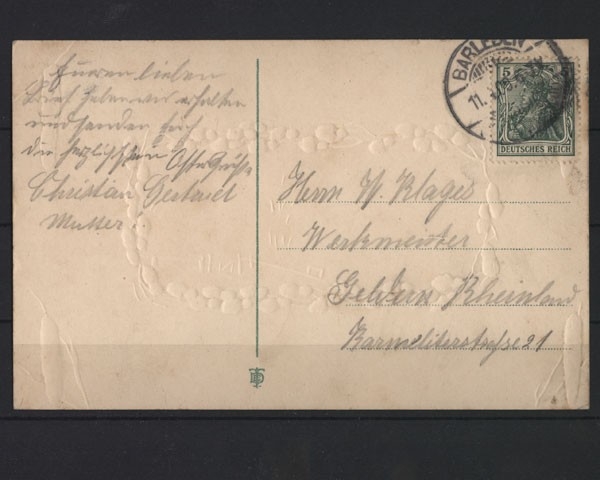 Eueren lieben
Brief haben wir erhalten
und senden Euch
die herzlichsten Ostergrüße
Christian Gertrud
Mutter!
BARLEBEN
11.
5
DEUTSCHES REICH
Herrn W Klages
Werkmeister
Geldern Rheinland
Karmeliterstraße 21